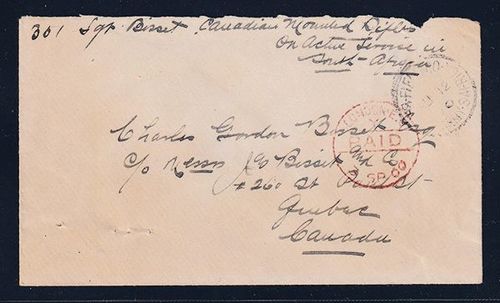 301 Sgt Bisset Canadian Mounted Rifles
On Active Service in
South Africa
Charles Gordon Bisset Esq
c/o Messrs J & Bisset & Co
#260 St Paul St
Quebec
Canada
LONDON
PAID
SP 00